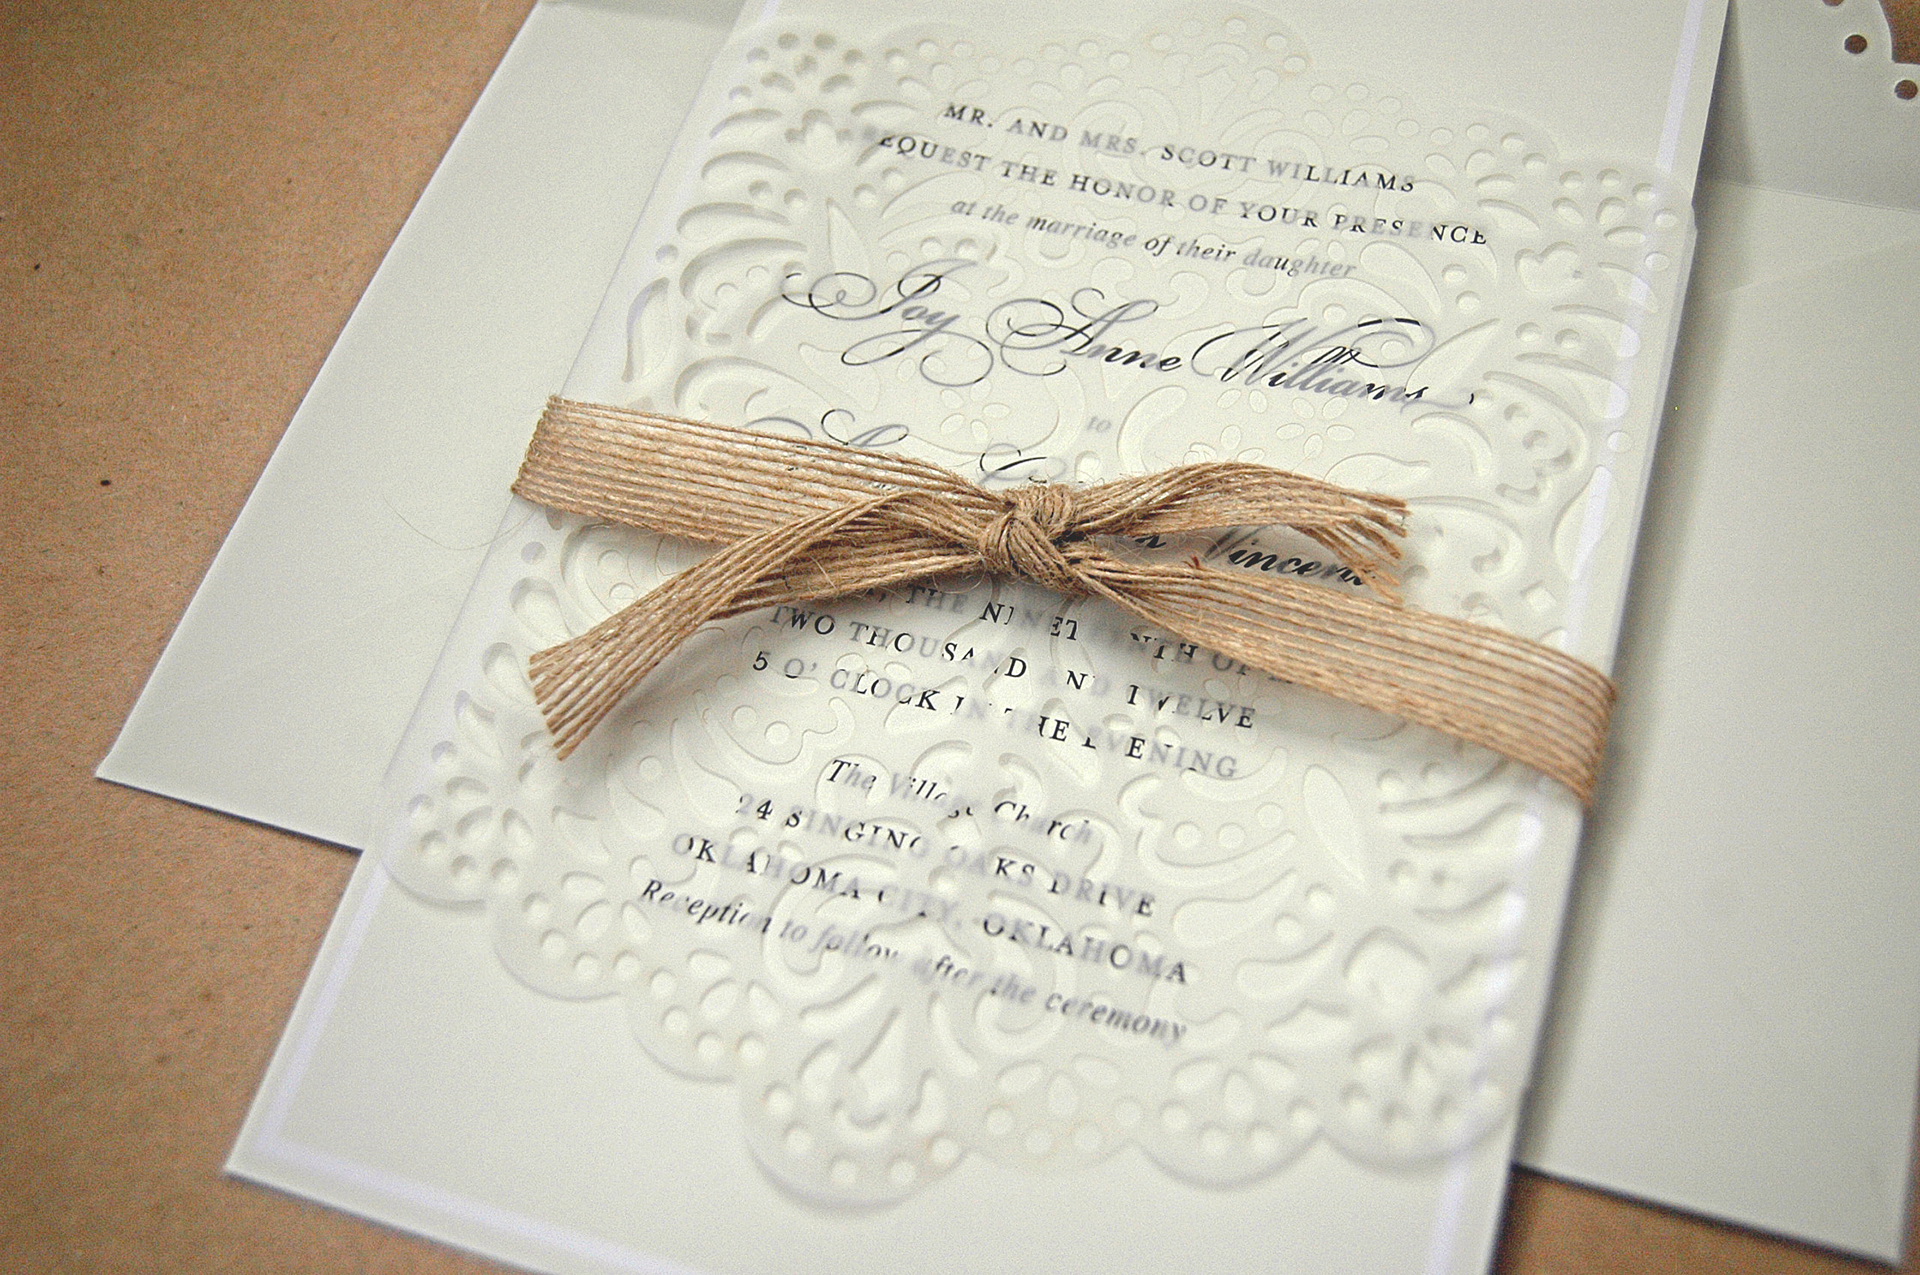 MR. AND MRS. SCOTT WILLIAMS
REQUEST THE HONOR OF YOUR PRESENCE
at the marriage of their daughter
Joy Anne Williams
to
Vincent
THE NINETEENTH OF
TWO THOUSAND AND TWELVE
5 O' CLOCK IN THE EVENING
The Village Church
24 SINGING OAKS DRIVE
OKLAHOMA CITY, OKLAHOMA
Reception to follow after the ceremony